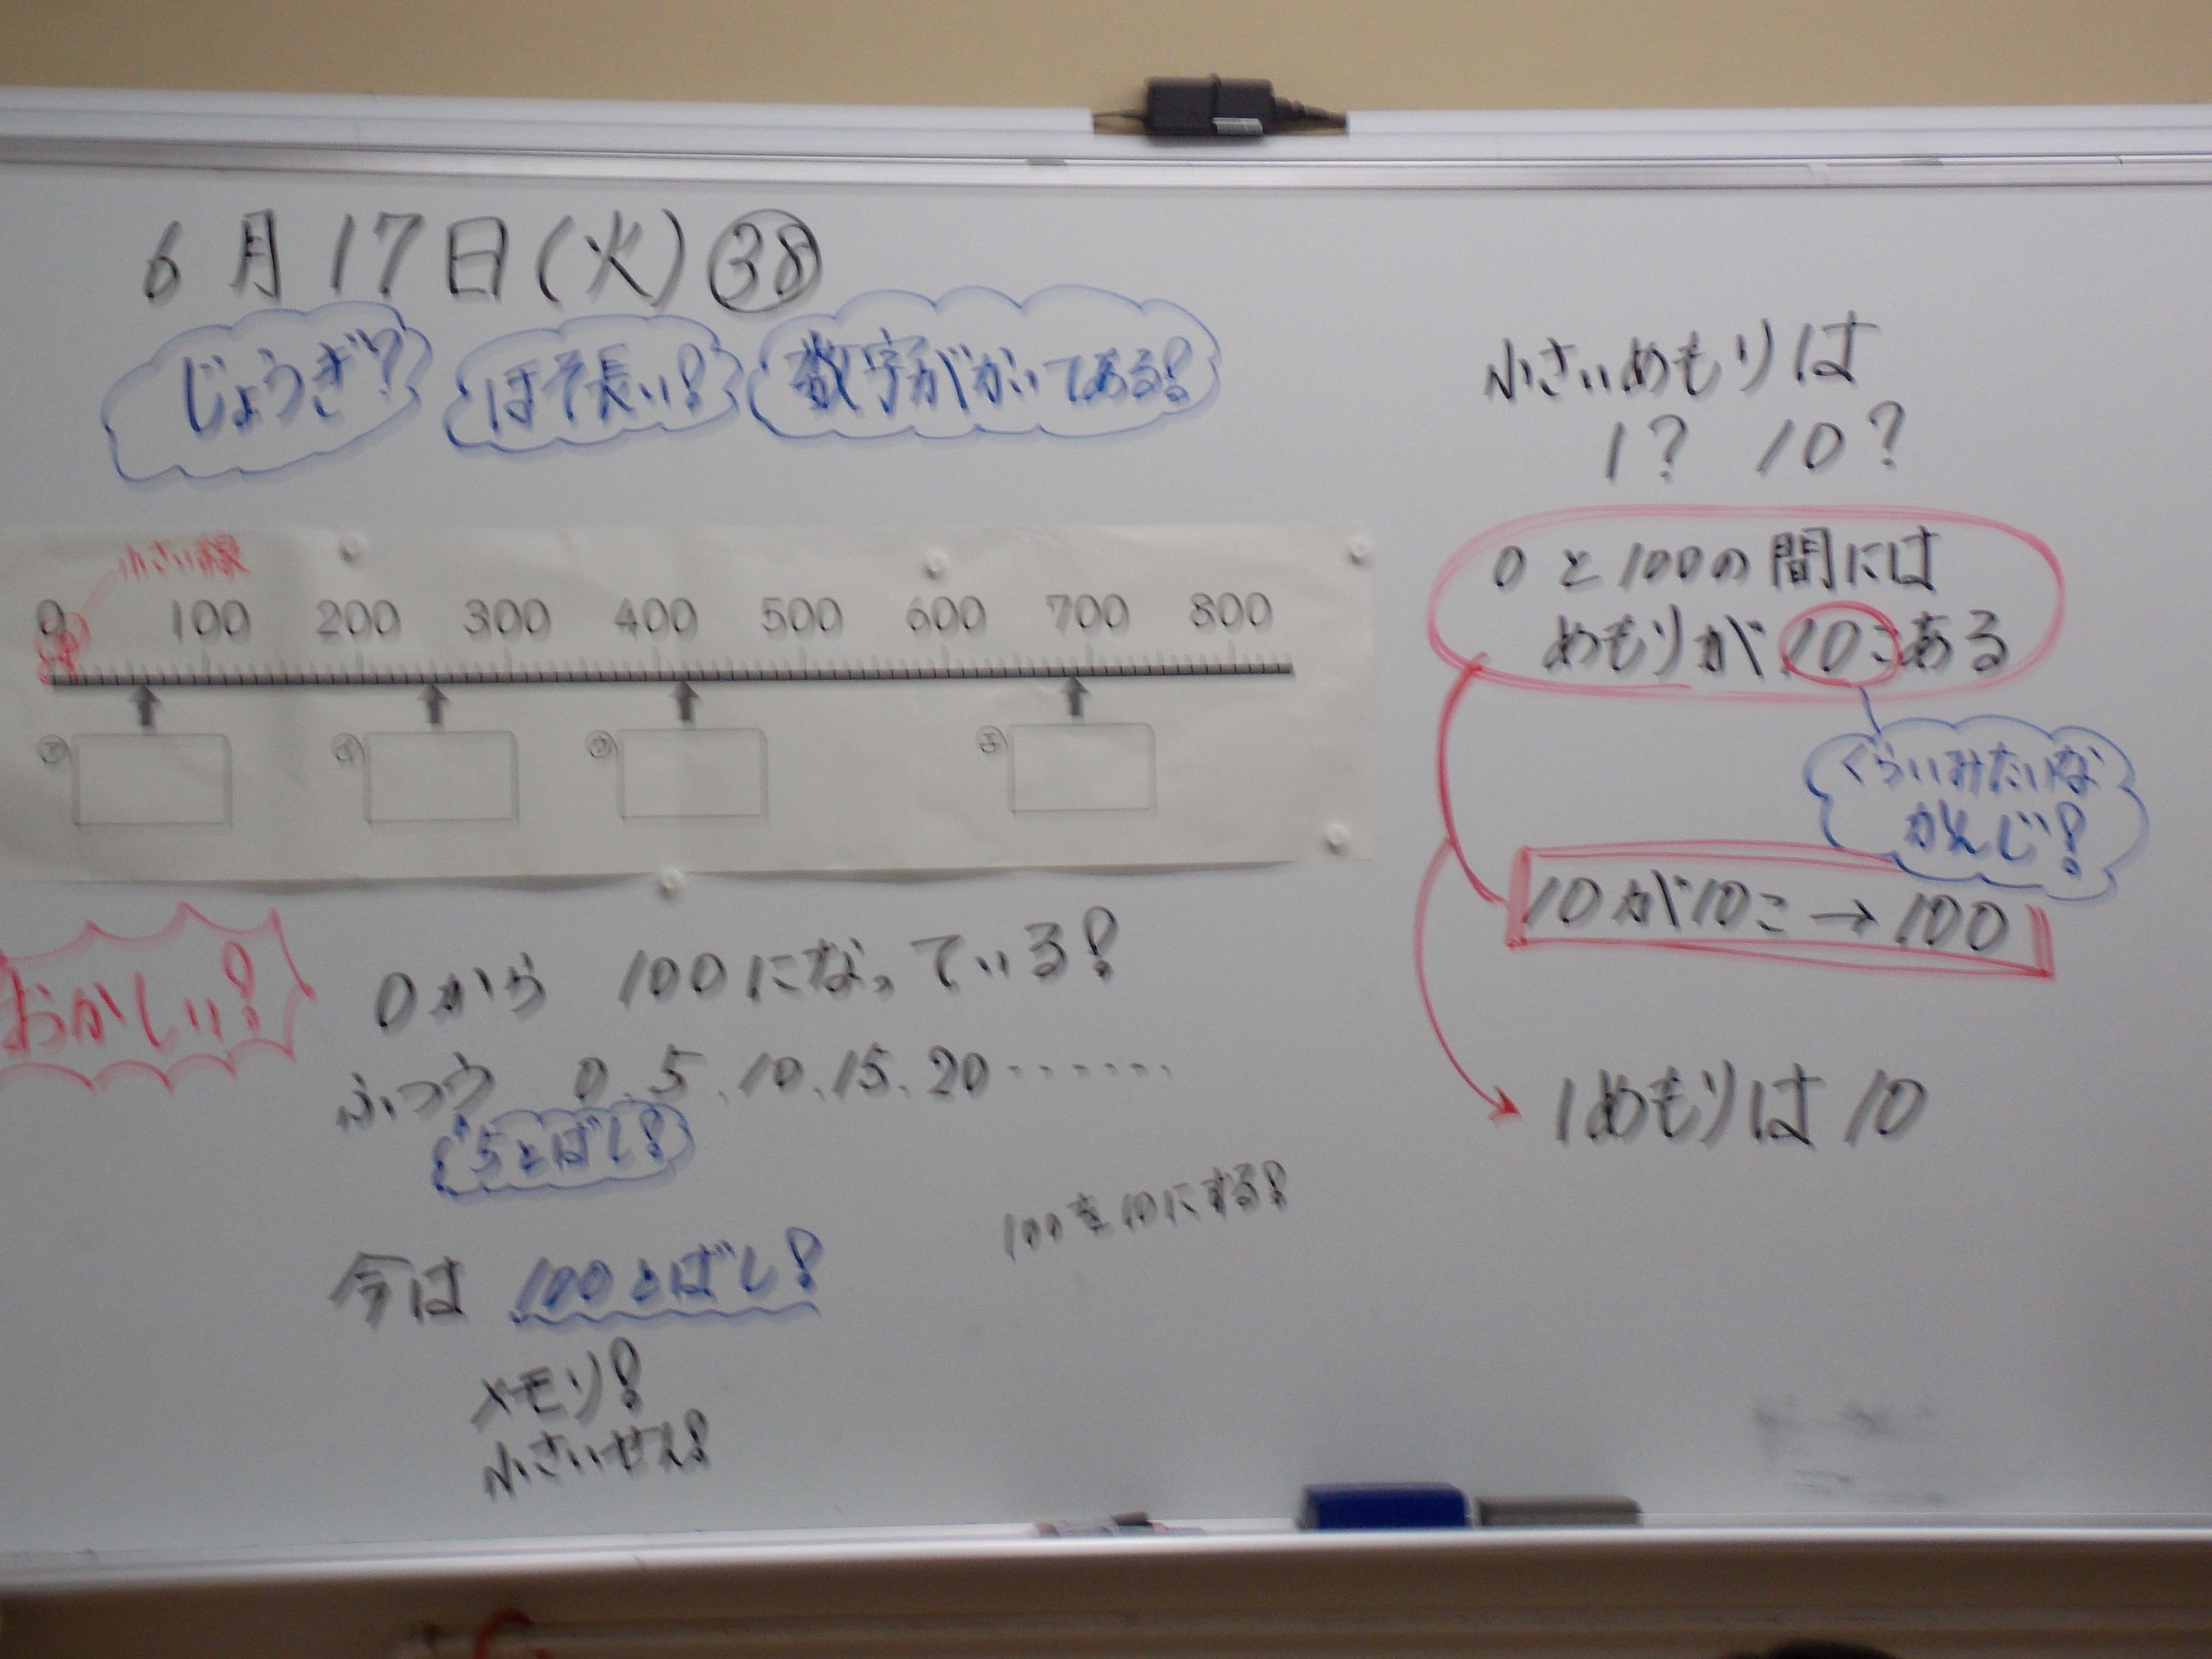 6月17日(火)㊳
じょうぎ?
ほそ長い!
数字がかいてある!
小さい線
0 100 200 300 400 500 600 700 800
おかしい!
0から 100になっている!
ふつう 0.5.10.15.20‥‥‥
5とばし!
今は 100とばし!
メモリ!
小さいせん!
100を10にする!
小さいめもりは
1? 10?
0と100の間には
めもりが10こある
くらいみたいな
かんじ!
10が10こ→100
1めもりは10